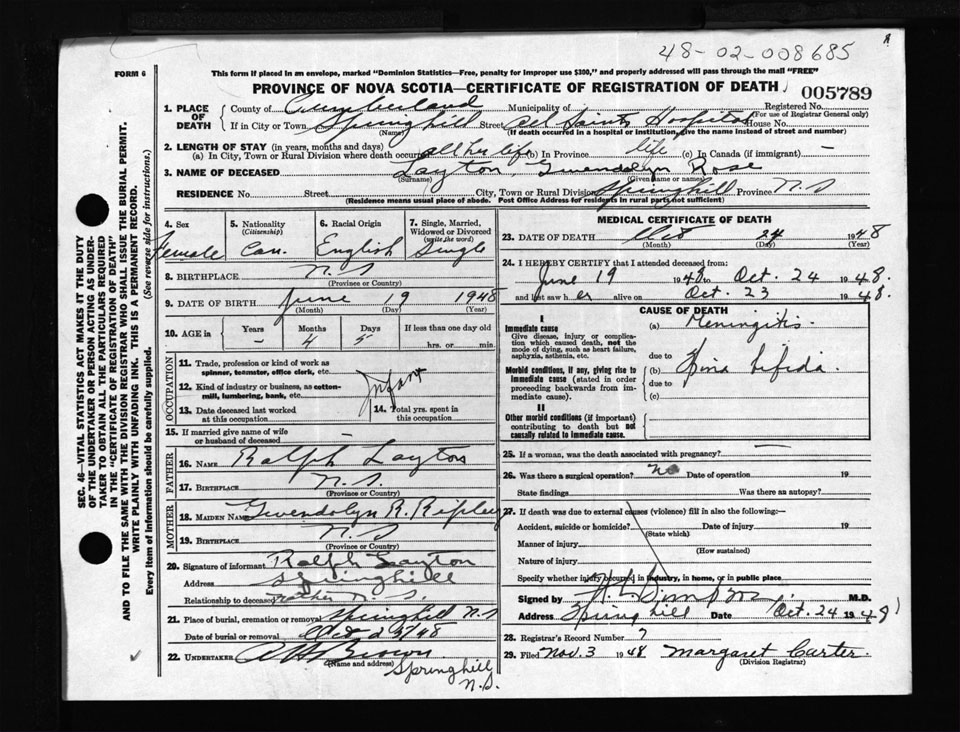 48-02-008685
FORM 6
This form if placed in an envelope, marked "Dominion Statistics—Free, penalty for improper use $300," and properly addressed will pass through the mail "FREE"
PROVINCE OF NOVA SCOTIA—CERTIFICATE OF REGISTRATION OF DEATH
005789
1. PLACE OF DEATH
County of Cumberland Municipality of Registered No.
(For use of Registrar General only)
If in City or Town Springhill Street All Saints Hospital House No.
(Name) (If death occurred in a hospital or institution, give the name instead of street and number)
2. LENGTH OF STAY (in years, months and days)
(a) In City, Town or Rural Division where death occurred all her life (b) In Province life (c) In Canada (if immigrant) —
3. NAME OF DECEASED Layton, Gwendolyn Rose
(Surname) (Given name or names)
RESIDENCE No. Street City, Town or Rural Division Springhill Province N.S
(Residence means usual place of abode. Post Office Address for residents in rural parts not sufficient)
4. Sex
Female
5. Nationality
(Citizenship)
Can.
6. Racial Origin
English
7. Single, Married, Widowed or Divorced
(write the word)
Single
8. BIRTHPLACE N.S
(Province or Country)
9. DATE OF BIRTH June 19 1948
(Month) (Day) (Year)
10. AGE in
Years Months Days If less than one day old
– 4 5 hrs. or min.
OCCUPATION
11. Trade, profession or kind of work as
spinner, teamster, office clerk, etc.
12. Kind of industry or business, as cotton-
mill, lumbering, bank, etc.
Infant
13. Date deceased last worked
at this occupation
14. Total yrs. spent in
this occupation
15. If married give name of wife
or husband of deceased —
FATHER
16. NAME Ralph Layton
17. BIRTHPLACE N.S.
(Province or Country)
MOTHER
18. MAIDEN NAME Gwendolyn R. Ripley
19. BIRTHPLACE N.S
(Province or Country)
20. Signature of informant Ralph Layton
Address Springhill
Relationship to deceased Father N.S.
21. Place of burial, cremation or removal Springhill N.S
Date of burial or removal Oct 25/48
22. UNDERTAKER Brown
(Name and address)
Springhill
N.S.
MEDICAL CERTIFICATE OF DEATH
23. DATE OF DEATH Oct 24 1948
(Month) (Day) (Year)
24. I HEREBY CERTIFY that I attended deceased from:
June 19 1948 to Oct. 24 1948.
and last saw her alive on Oct. 23 1948.
CAUSE OF DEATH
I
Immediate cause
Give disease, injury or complica-
tion which caused death, not the
mode of dying, such as heart failure,
asphyxia, asthenia, etc.
(a) Meningitis.
due to
Morbid conditions, if any, giving rise to
immediate cause (stated in order
proceeding backwards from im-
mediate cause).
(b) Spina bifida.
due to
(c)
II
Other morbid conditions (if important)
contributing to death but not
causally related to immediate cause.
25. If a woman, was the death associated with pregnancy? —
26. Was there a surgical operation? no Date of operation 19
State findings Was there an autopsy?
27. If death was due to external causes (violence) fill in also the following:—
Accident, suicide or homicide? Date of injury 19
(State which)
Manner of injury
(How sustained)
Nature of injury
Specify whether injury occurred in industry, in home, or in public place
Signed by Simpson M.D.
Address Springhill Date Oct. 24 1948
28. Registrar's Record Number 7
29. Filed Nov. 3 1948 Margaret Carter.
(Division Registrar)
SEC. 46—VITAL STATISTICS ACT MAKES IT THE DUTY
OF THE UNDERTAKER OR PERSON ACTING AS UNDER-
TAKER TO OBTAIN ALL THE PARTICULARS REQUIRED
IN THE "CERTIFICATE OF REGISTRATION OF DEATH"
AND TO FILE THE SAME WITH THE DIVISION REGISTRAR WHO SHALL ISSUE THE BURIAL PERMIT.
WRITE PLAINLY WITH UNFADING INK. THIS IS A PERMANENT RECORD.
Every item of Information should be carefully supplied. (See reverse side for instructions.)